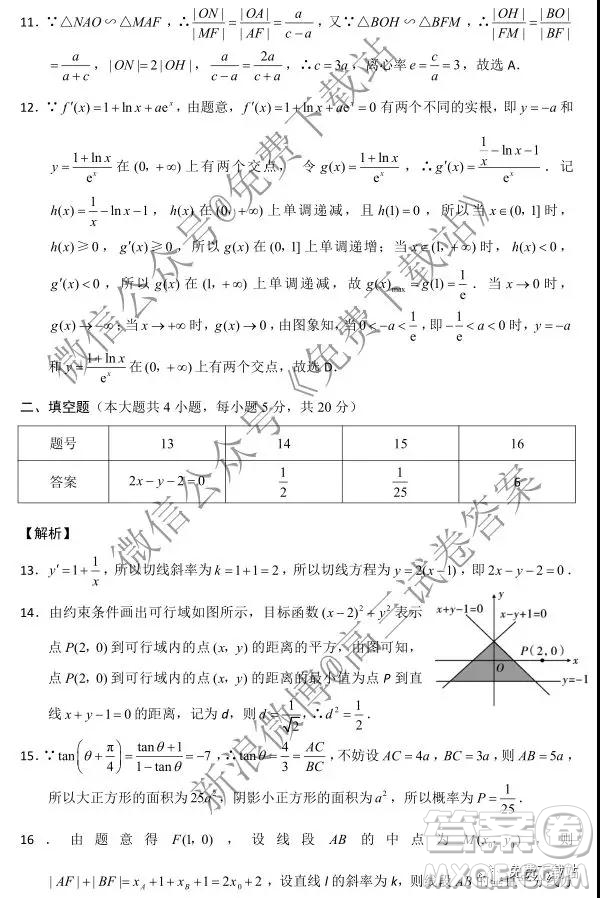 11．∵△NAO∽△MAF，∴|ON|/|MF|=|OA|/|AF|=a/(c-a)，又∵△BOH∽△BFM，∴|OH|/|FM|=|BO|/|BF|
=a/(a+c)，|ON|=2|OH|，a/(c-a)=2a/(c+a)，∴c=3a，离心率e=c/a=3，故选A．
12．∵f′(x)=1+ln x+aeˣ，由题意，f′(x)=1+ln x+aeˣ=0有两个不同的实根，即y=-a和
y=(1+ln x)/eˣ在(0，+∞)上有两个交点，令g(x)=(1+ln x)/eˣ，∴g′(x)=(1/x-ln x-1)/eˣ．记
h(x)=1/x-ln x-1，h(x)在(0，+∞)上单调递减，且h(1)=0，所以当x∈(0，1]时，
h(x)≥0，g′(x)≥0，所以g(x)在(0，1]上单调递增；当x∈(1，+∞)时，h(x)<0，
g′(x)<0，所以g(x)在(1，+∞)上单调递减，故g(x)max=g(1)=1/e．当x→0时，
g(x)→-∞；当x→+∞时，g(x)→0，由图象知，当0<-a<1/e，即-1/e<a<0时，y=-a
和y=(1+ln x)/eˣ在(0，+∞)上有两个交点，故选D．
二、填空题（本大题共4小题，每小题5分，共20分）
题号 13 14 15 16
答案 2x-y-2=0 1/2 1/25 6
【解析】
13．y′=1+1/x，所以切线斜率为k=1+1=2，所以切线方程为y=2(x-1)，即2x-y-2=0．
14．由约束条件画出可行域如图所示，目标函数(x-2)²+y²表示
点P(2，0)到可行域内的点(x，y)的距离的平方，由图可知，
点P(2，0)到可行域内的点(x，y)的距离的最小值为点P到直
线x+y-1=0的距离，记为d，则d=1/√2，∴d²=1/2．
x+y-1=0
y
x-y+1=0
P(2，0)
x
O
y=-1
15．∵tan(θ+π/4)=(tanθ+1)/(1-tanθ)=-7，∴tanθ=4/3=AC/BC，不妨设AC=4a，BC=3a，则AB=5a，
所以大正方形的面积为25a²，阴影小正方形的面积为a²，故概率为P=1/25．
16．由题意得F(1，0)，设线段AB的中点为M(x₀，y₀)，则
|AF|+|BF|=x_A+1+x_B+1=2x₀+2，设直线l的斜率为k，则线段AB的
微信公众号@免费下载站
微信公众号《免费下载站》
新浪微博@高三试卷答案
免费下载站